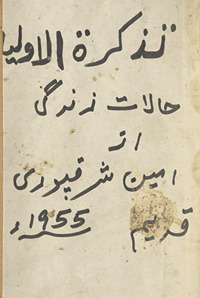 تذکرۃ الاولیا
حالات زندگی
از
امین شرقپوری
قدیم 1955ء